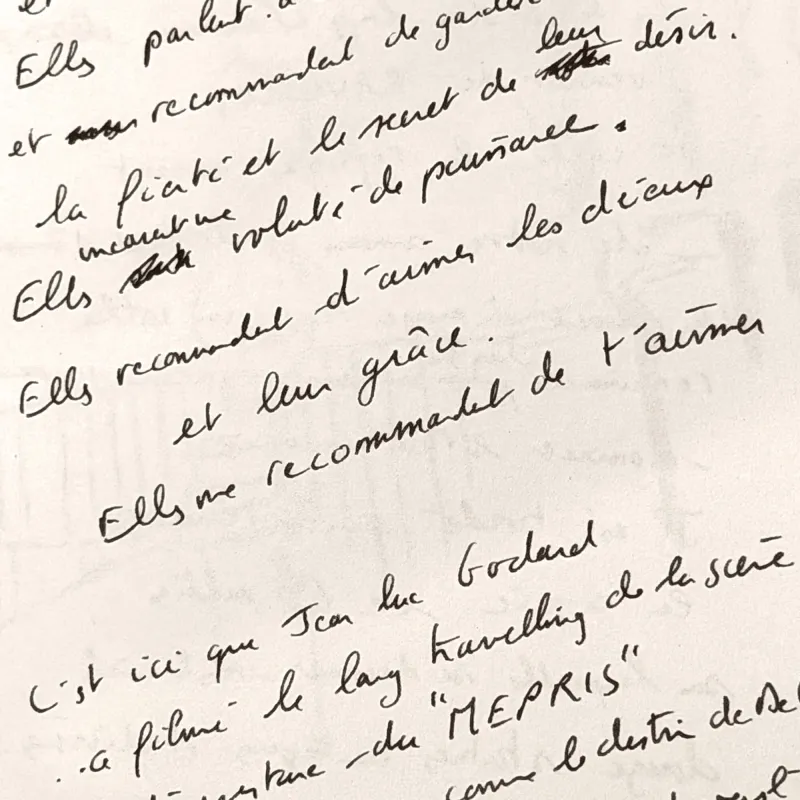 et
Elles parlent
et recommandent de garder
leur
la fierté et le secret de désir.
incarnent une
Elles volonté de puissance.
Elles recommandent d'aimer les dieux
et leur grâce.
Elles me recommandent de t'aimer
C'est ici que Jean Luc Godard
a filmé le long travelling de la scène
du "MEPRIS"
comme le destin de